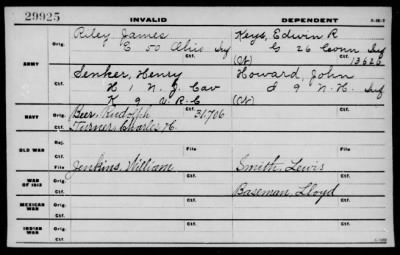 29925 INVALID DEPENDENT 3-10-7
ARMY
Orig. Riley, James Keys, Edwin R
E 50 Ohio Inf G 26 Conn Inf
Ctf. (Ct) 13626
Orig. Senker, Henry Howard, John
H 1 N. J. Cav I 9 N. H. Inf
Ctf. K 9 V. R. C (Ct)
NAVY
Orig. Beer, Rudolph 31,706
Ctf. Turner, Charles H.
OLD WAR
Rej.
File File
WAR OF 1812
Orig. Jenkins, William Smith, Lewis
Ctf. Baseman, Lloyd
MEXICAN WAR
Orig.
Ctf.
INDIAN WAR
Orig.
Ctf.